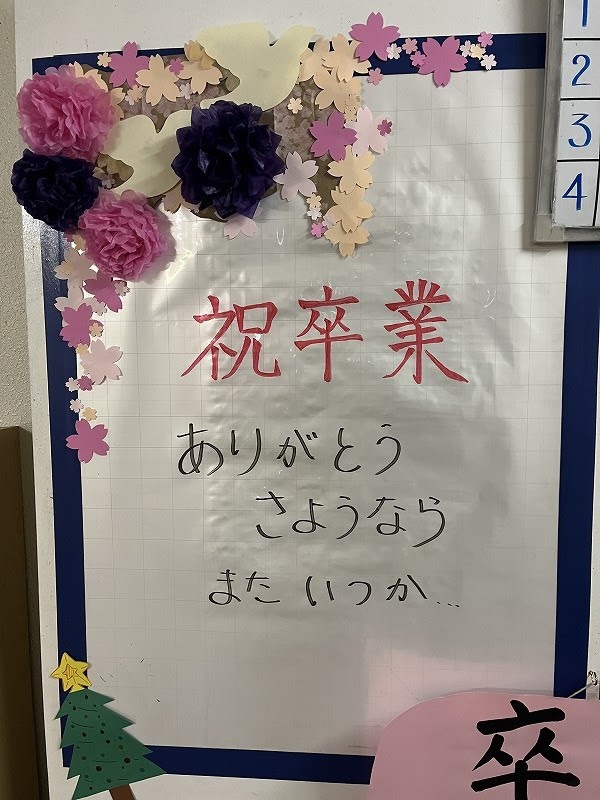 祝卒業
ありがとう
さようなら
またいつか…
1
2
3
4
卒